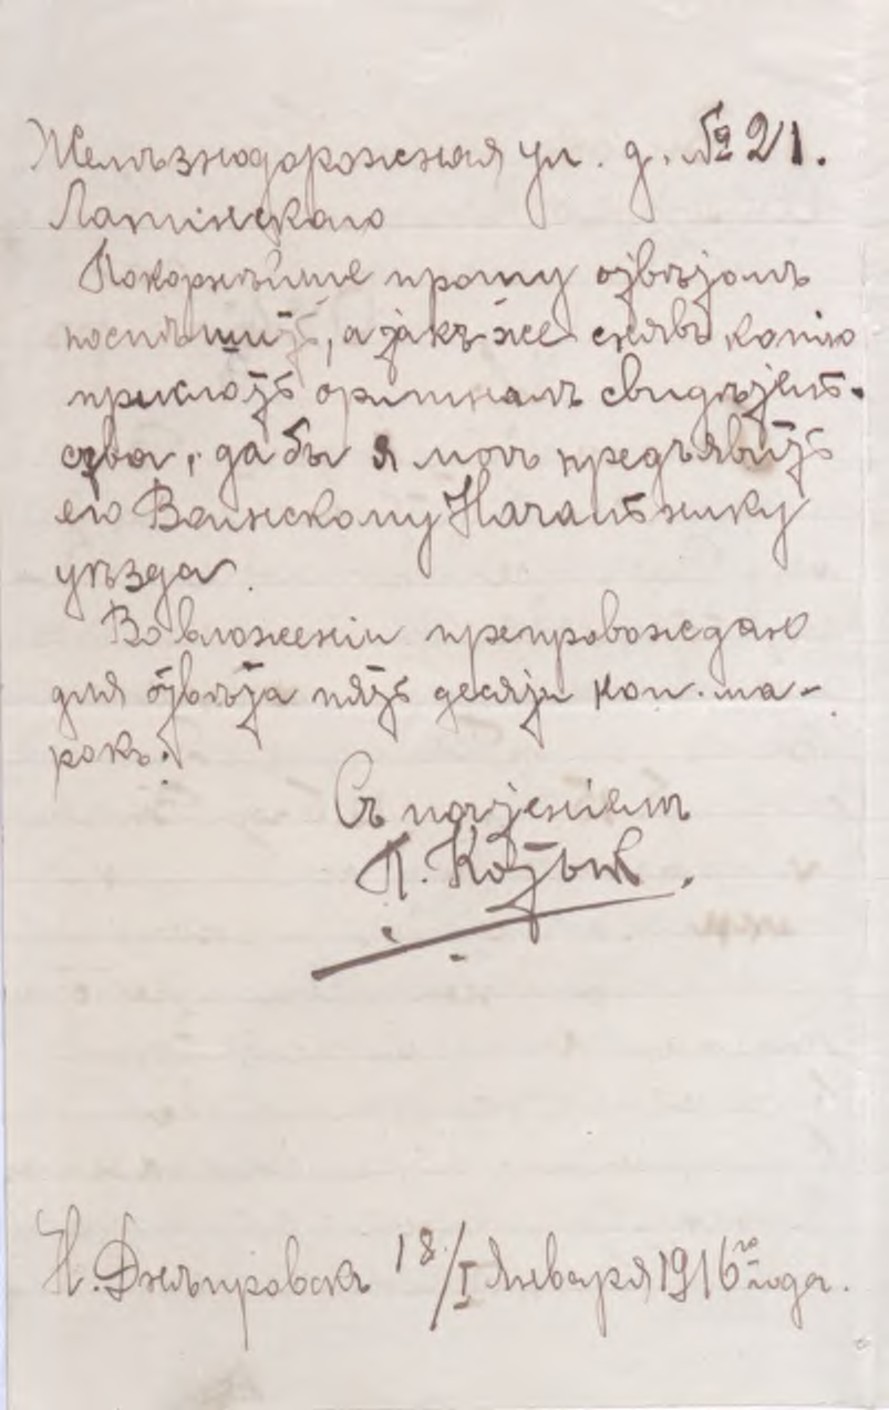 Желѣзнодорожная ул. д. № 21.
Латинскаго
Покорнѣйше прошу отвѣтомъ
поспѣшить, а такъ же снявъ копію
приклоть оригиналъ свидѣтель-
ства, да бы я могъ предъявить
его Воинскому Начальнику
уѣзда.
Во вложеніи препровождаю
для отвѣта пять десяти коп. ма-
рокъ.
Съ почтеніемъ
П. Котык.
Н. Днѣпровскъ 18/I Января 1916 го года.